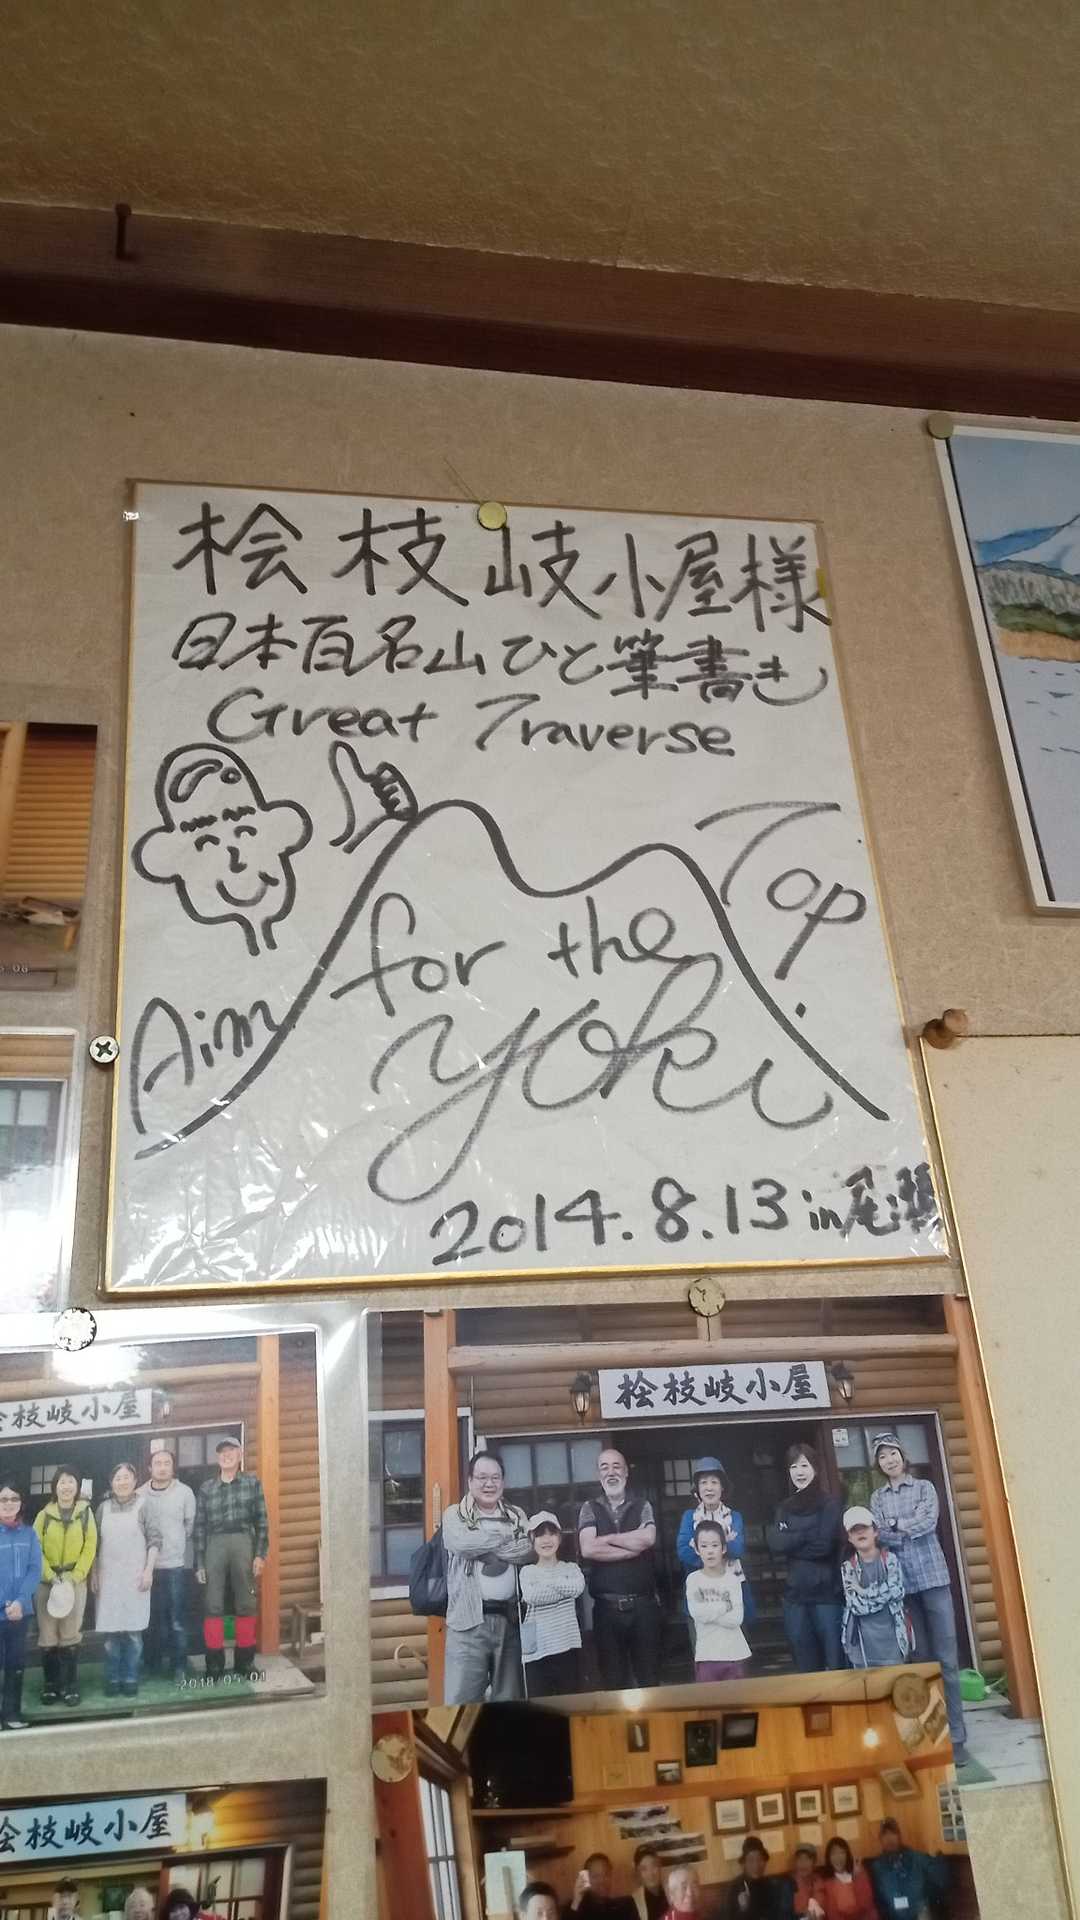 桧枝岐小屋様
日本百名山ひと筆書き
Great Traverse
Aim for the Top.
yoki
2014.8.13 in 尾瀬
桧枝岐小屋
枝岐小屋
2018/05/01
桧枝岐小屋
08